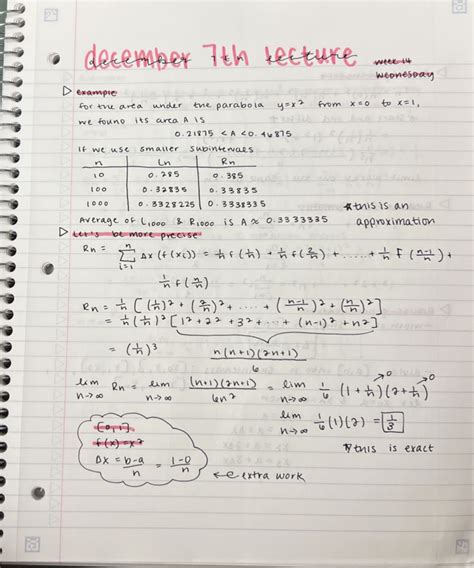 december 7th lecture
december 7th lecture
week 14
Wednesday
▷ example
For the area under the parabola y=x² from x=0 to x=1,
we found its area A is
0.21875 < A < 0.46875
If we use smaller subintervals
n | Ln | Rn
10 | 0.285 | 0.385
100 | 0.32835 | 0.33835
1000 | 0.3328225 | 0.3338335
*this is an
approximation
Average of L1000 & R1000 is A ≈ 0.3333335
▷ Let's be more precise
Rn = n Σ i=1 Δx (f(xi)) = 1/n f(1/n) + 1/n f(2/n) + ..... + 1/n f(n-1/n) +
1/n f(n/n)
Rn = 1/n [(1/n)² + (2/n)² + .... + (n-1/n)² + (n/n)²]
= 1/n (1/n)² [1² + 2² + 3² + ... + (n-1)² + n²]
= (1/n)³ n(n+1)(2n+1)/6
lim n→∞ Rn = lim n→∞ (n+1)(2n+1)/6n² = lim n→∞ 1/6 (1 + 1/n)(2 + 1/n) →0 →0
lim n→∞ 1/6 (1)(2) = 1/3
*this is exact
[0,1]
f(x)=x²
Δx = b-a/n = 1-0/n
← extra work